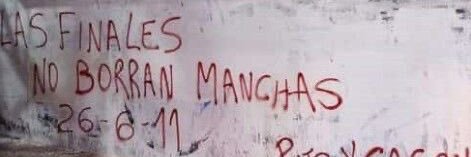 LAS FINALES
NO BORRAN MANCHAS
26-6-11